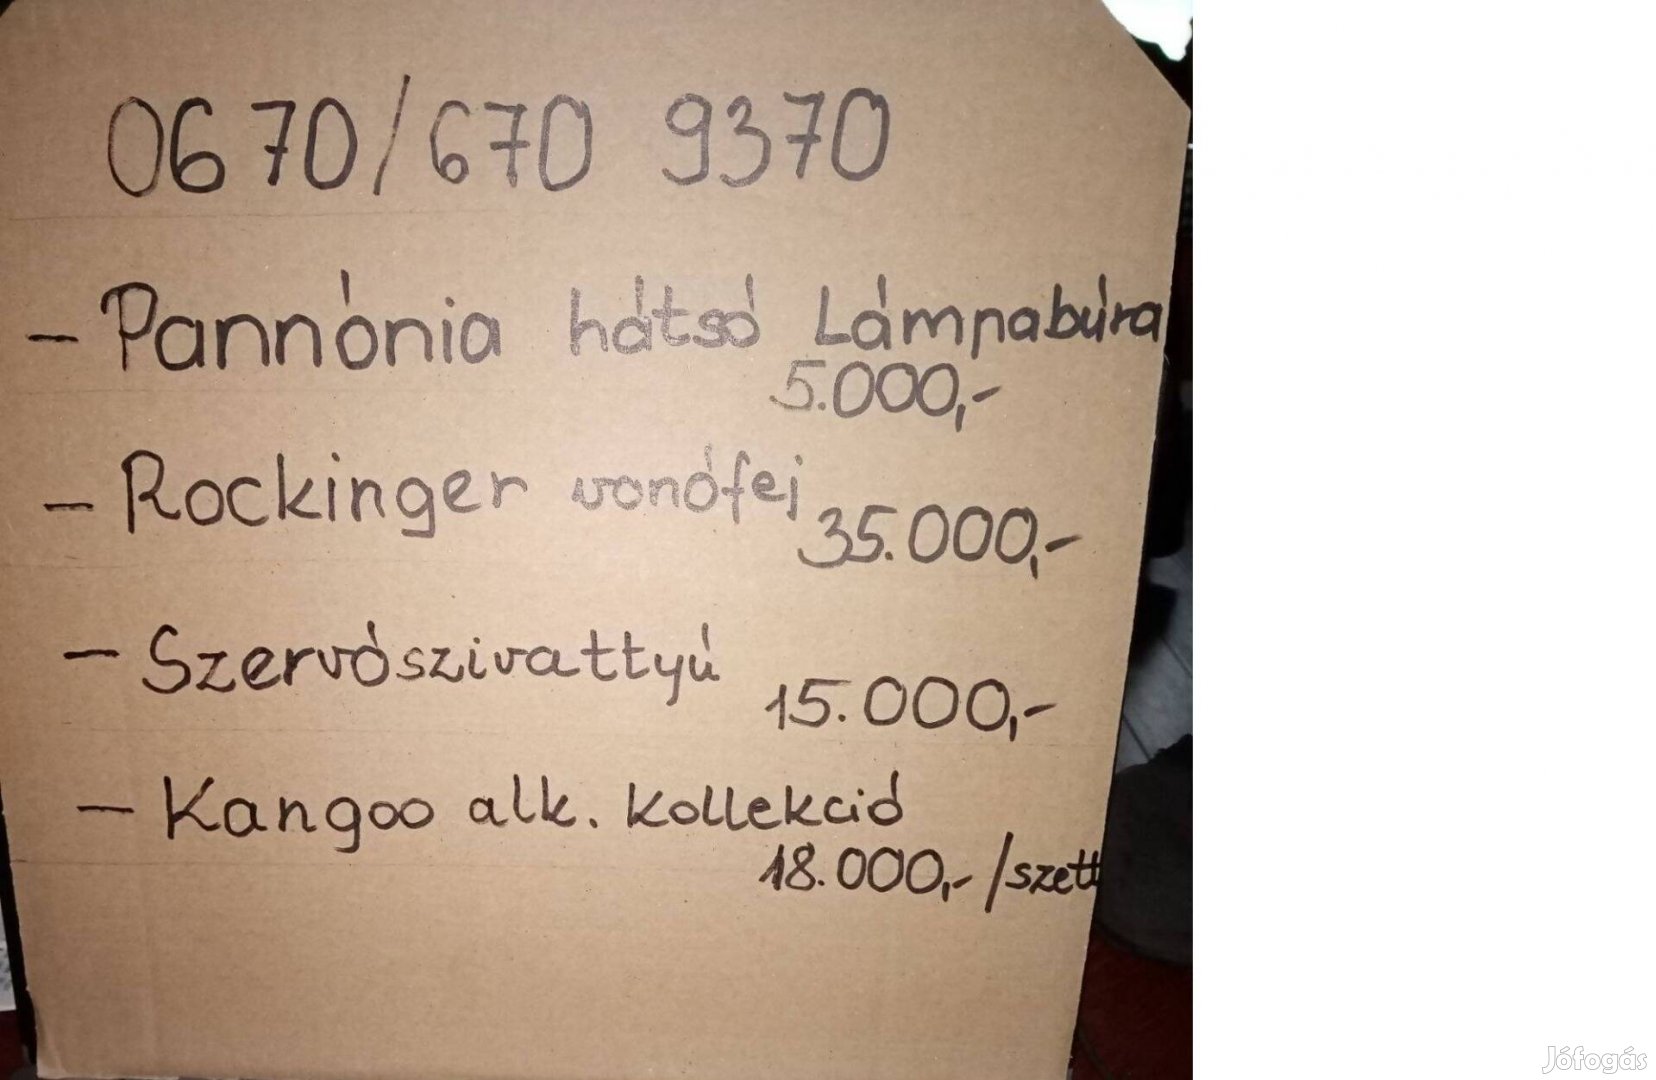 0670/670 9370
- Pannónia hátsó Lámpabúra
5.000,-
- Rockinger vonófej
35.000,-
- Szervószivattyú
15.000,-
- Kangoo alk. kollekció
18.000,-/szett
Jófogás